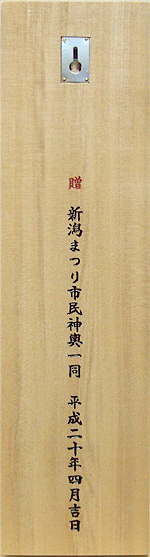 贈 新潟まつり市民神輿一同 平成二十年四月吉日